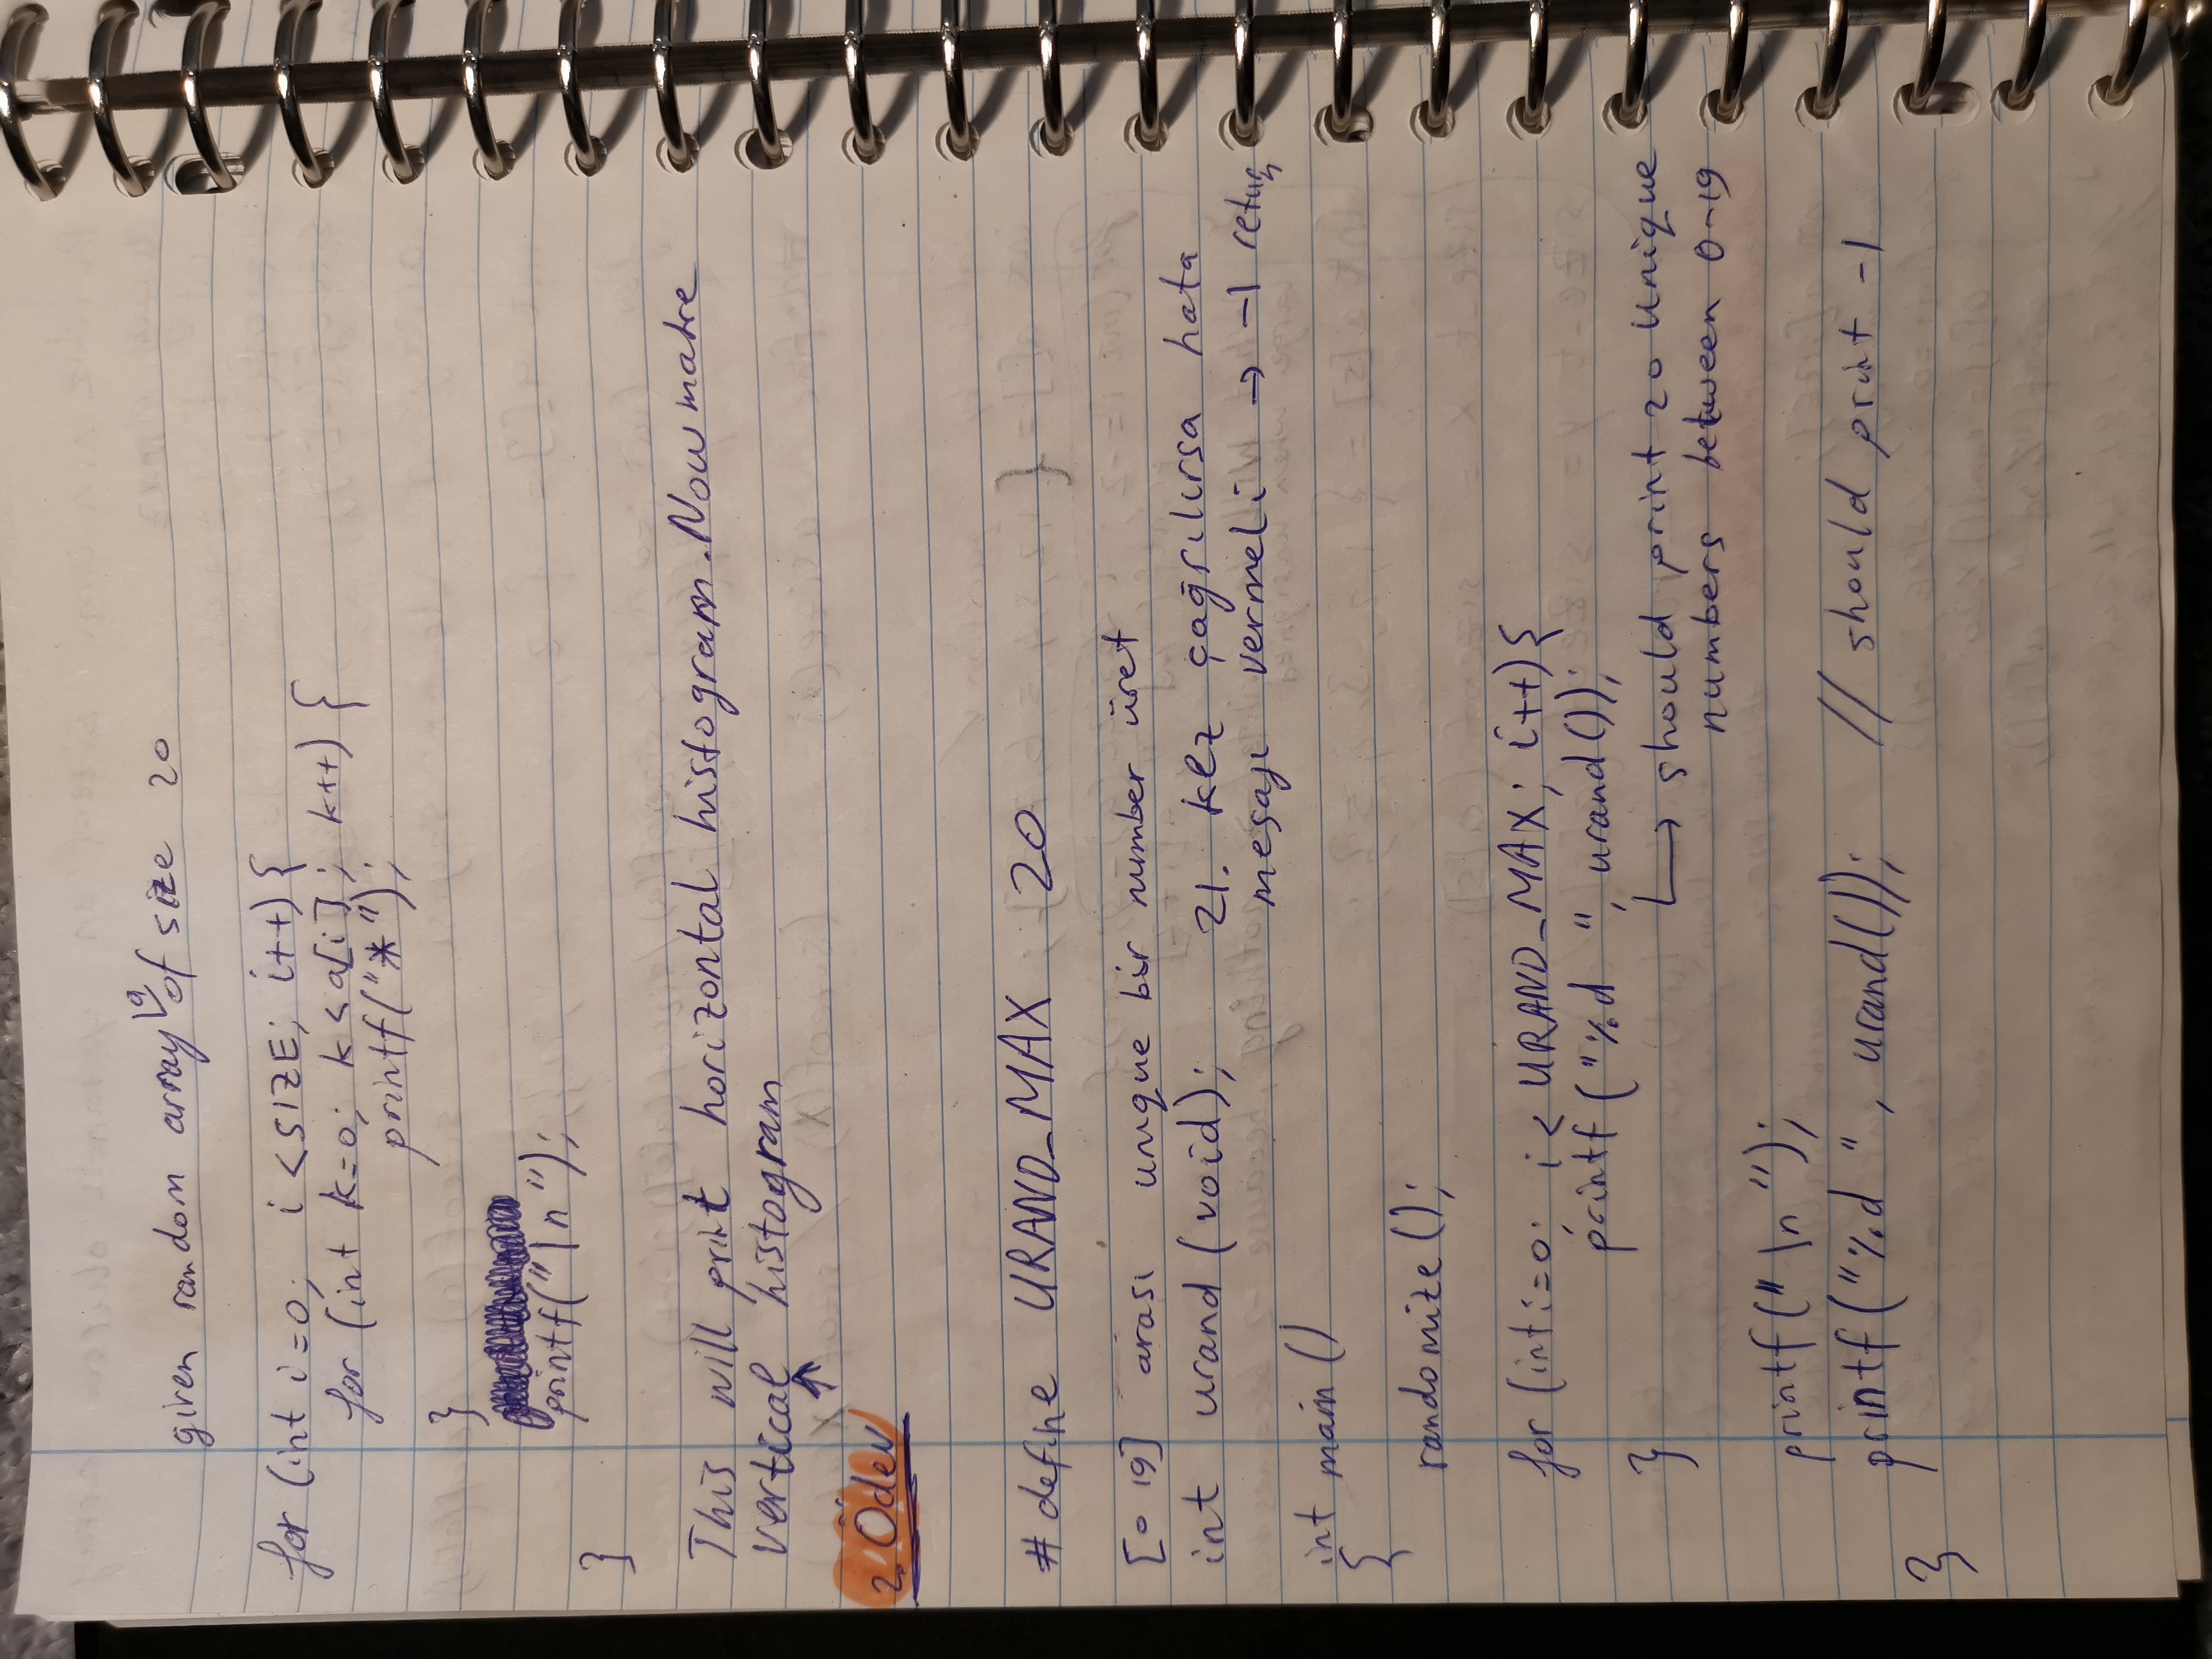 given random array a of size 20
for (int i=0; i<SIZE; i++) {
for (int k=0; k<a[i]; k++) {
printf("*");
}
printf("\n");
}
This will print horizontal histogram. Now make
vertical histogram
2. Ödev
#define URAND_MAX 20
[0 19] arası unique bir number üret
int urand (void); 21. kez çağrılırsa hata
mesajı vermeli → -1 return
int main ()
{
randomize ();
for (int i=0; i< URAND_MAX; i++) {
printf ("%d ", urand());
} → should print 20 unique
numbers between 0-19
printf("\n");
printf("%d ", urand()); // should print -1
}